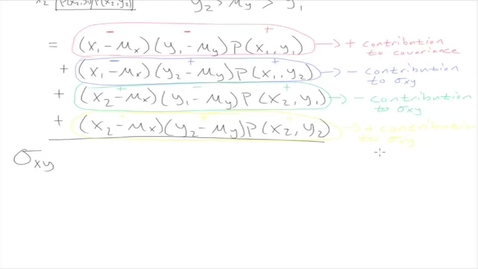 x₂ P(x₂,y₁) P(x₂,y₂) y₂ > μy > y₁
= (x₁ - μx)(y₁ - μy)P(x₁, y₁) → + contribution to covariance
+ (x₁ - μx)(y₂ - μy)P(x₁, y₂) → - contribution to σxy
+ (x₂ - μx)(y₁ - μy)P(x₂, y₁) → - contribution to σxy
+ (x₂ - μx)(y₂ - μy)P(x₂, y₂) → + contribution to σxy
σxy